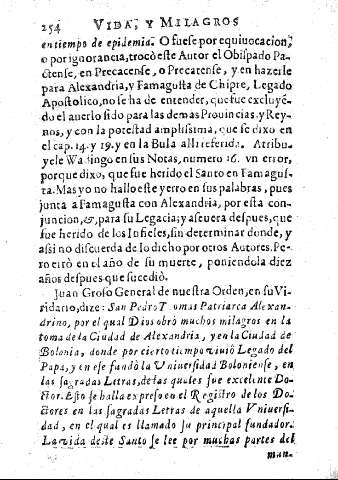 254 VIDA, Y MILAGROS
en tiempo de epidemia. O fuese por equiuocacion,
o por ignorancia, trocò este Autor el Obispado Pa-
ctense, en Precacense, o Precatense, y en hazerle
para Alexandria, y Famagusta de Chipre, Legado
Apostolico, no se ha de entender, que fue excluyē-
do el auerlo sido para las demas Prouincias, y Rey-
nos, y con la potestad amplissima, que se dixo en
el cap. 14. y 19. y en la Bula alli referida. Atribu-
yele Wadingo en sus Notas, numero 16. vn error,
porque dixo, que fue herido el Santo en Famagus-
ta. Mas yo no hallo este yerro en sus palabras, pues
junta a Famagusta con Alexandria, por esta con-
juncion, &, para su Legacia; y aseuera despues, que
fue herido de los Infieles, sin determinar donde, y
assi no discuerda de lo dicho por otros Autores. Pe-
ro errò en el año de su muerte, poniendola diez
años despues que sucediò.
Juan Groso General de nuestra Orden, en su Vi-
ridario, dize: San Pedro Tomas Patriarca Alexan-
drino, por el qual Dios obrò muchos milagros en la
toma de la Ciudad de Alexandria, y en la Ciudad de
Bolonia, donde por cierto tiempo viuiò Legado del
Papa, y en ese fundò la Vniuersidad Boloniense, en
las sagradas Letras, de las quales fue excelente Do-
ctor. Esto se halla expreso en el Registro de los Do-
ctores en las sagradas Letras de aquella Vniuersi-
dad, en el qual es llamado su principal fundador.
La vida deste Santo se lee por muchas partes del